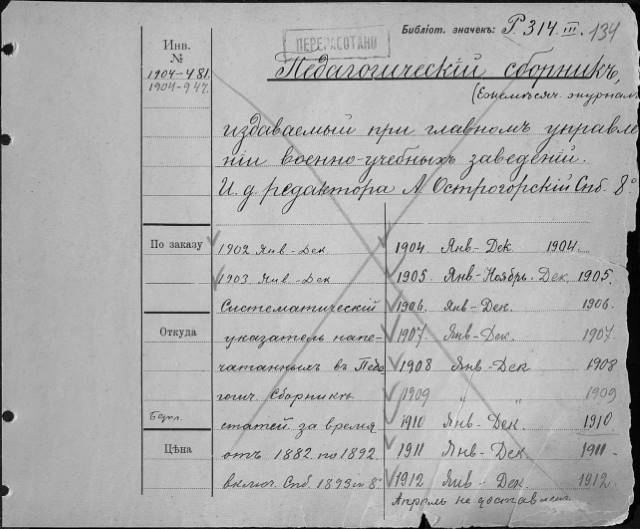 Библіот. значекъ: Р 314 III. 134
ПЕРЕРАБОТАНО
Инв.
№
1904-481.
1904-947.
Педагогическій сборникъ,
(Ежемѣсяч. журнал
издаваемый при главномъ управле-
ніи военно-учебныхъ заведеній.
И. д. редактора А Острогорскій Спб. 8°
По заказу
Откуда
Цѣна
1902 Янв-Дек.
1903 Янв-Дек
Систематическій
указатель напе-
чатаннымъ въ Педа
гогич. Сборникѣ
статей за время
отъ 1882 по 1892
включ. Спб. 1893 8°
1904. Янв-Дек. 1904.
1905. Янв-Ноябрь-Дек. 1905.
1906. Янв-Дек. 1906.
1907. Янв-Дек. 1907.
1908 Янв-Дек 1908
1909 " " 1909
1910 Янв-Дек. 1910
1911 Янв-Дек. 1911-
1912 Янв-Дек. 1912.
Апрель не доставлен.